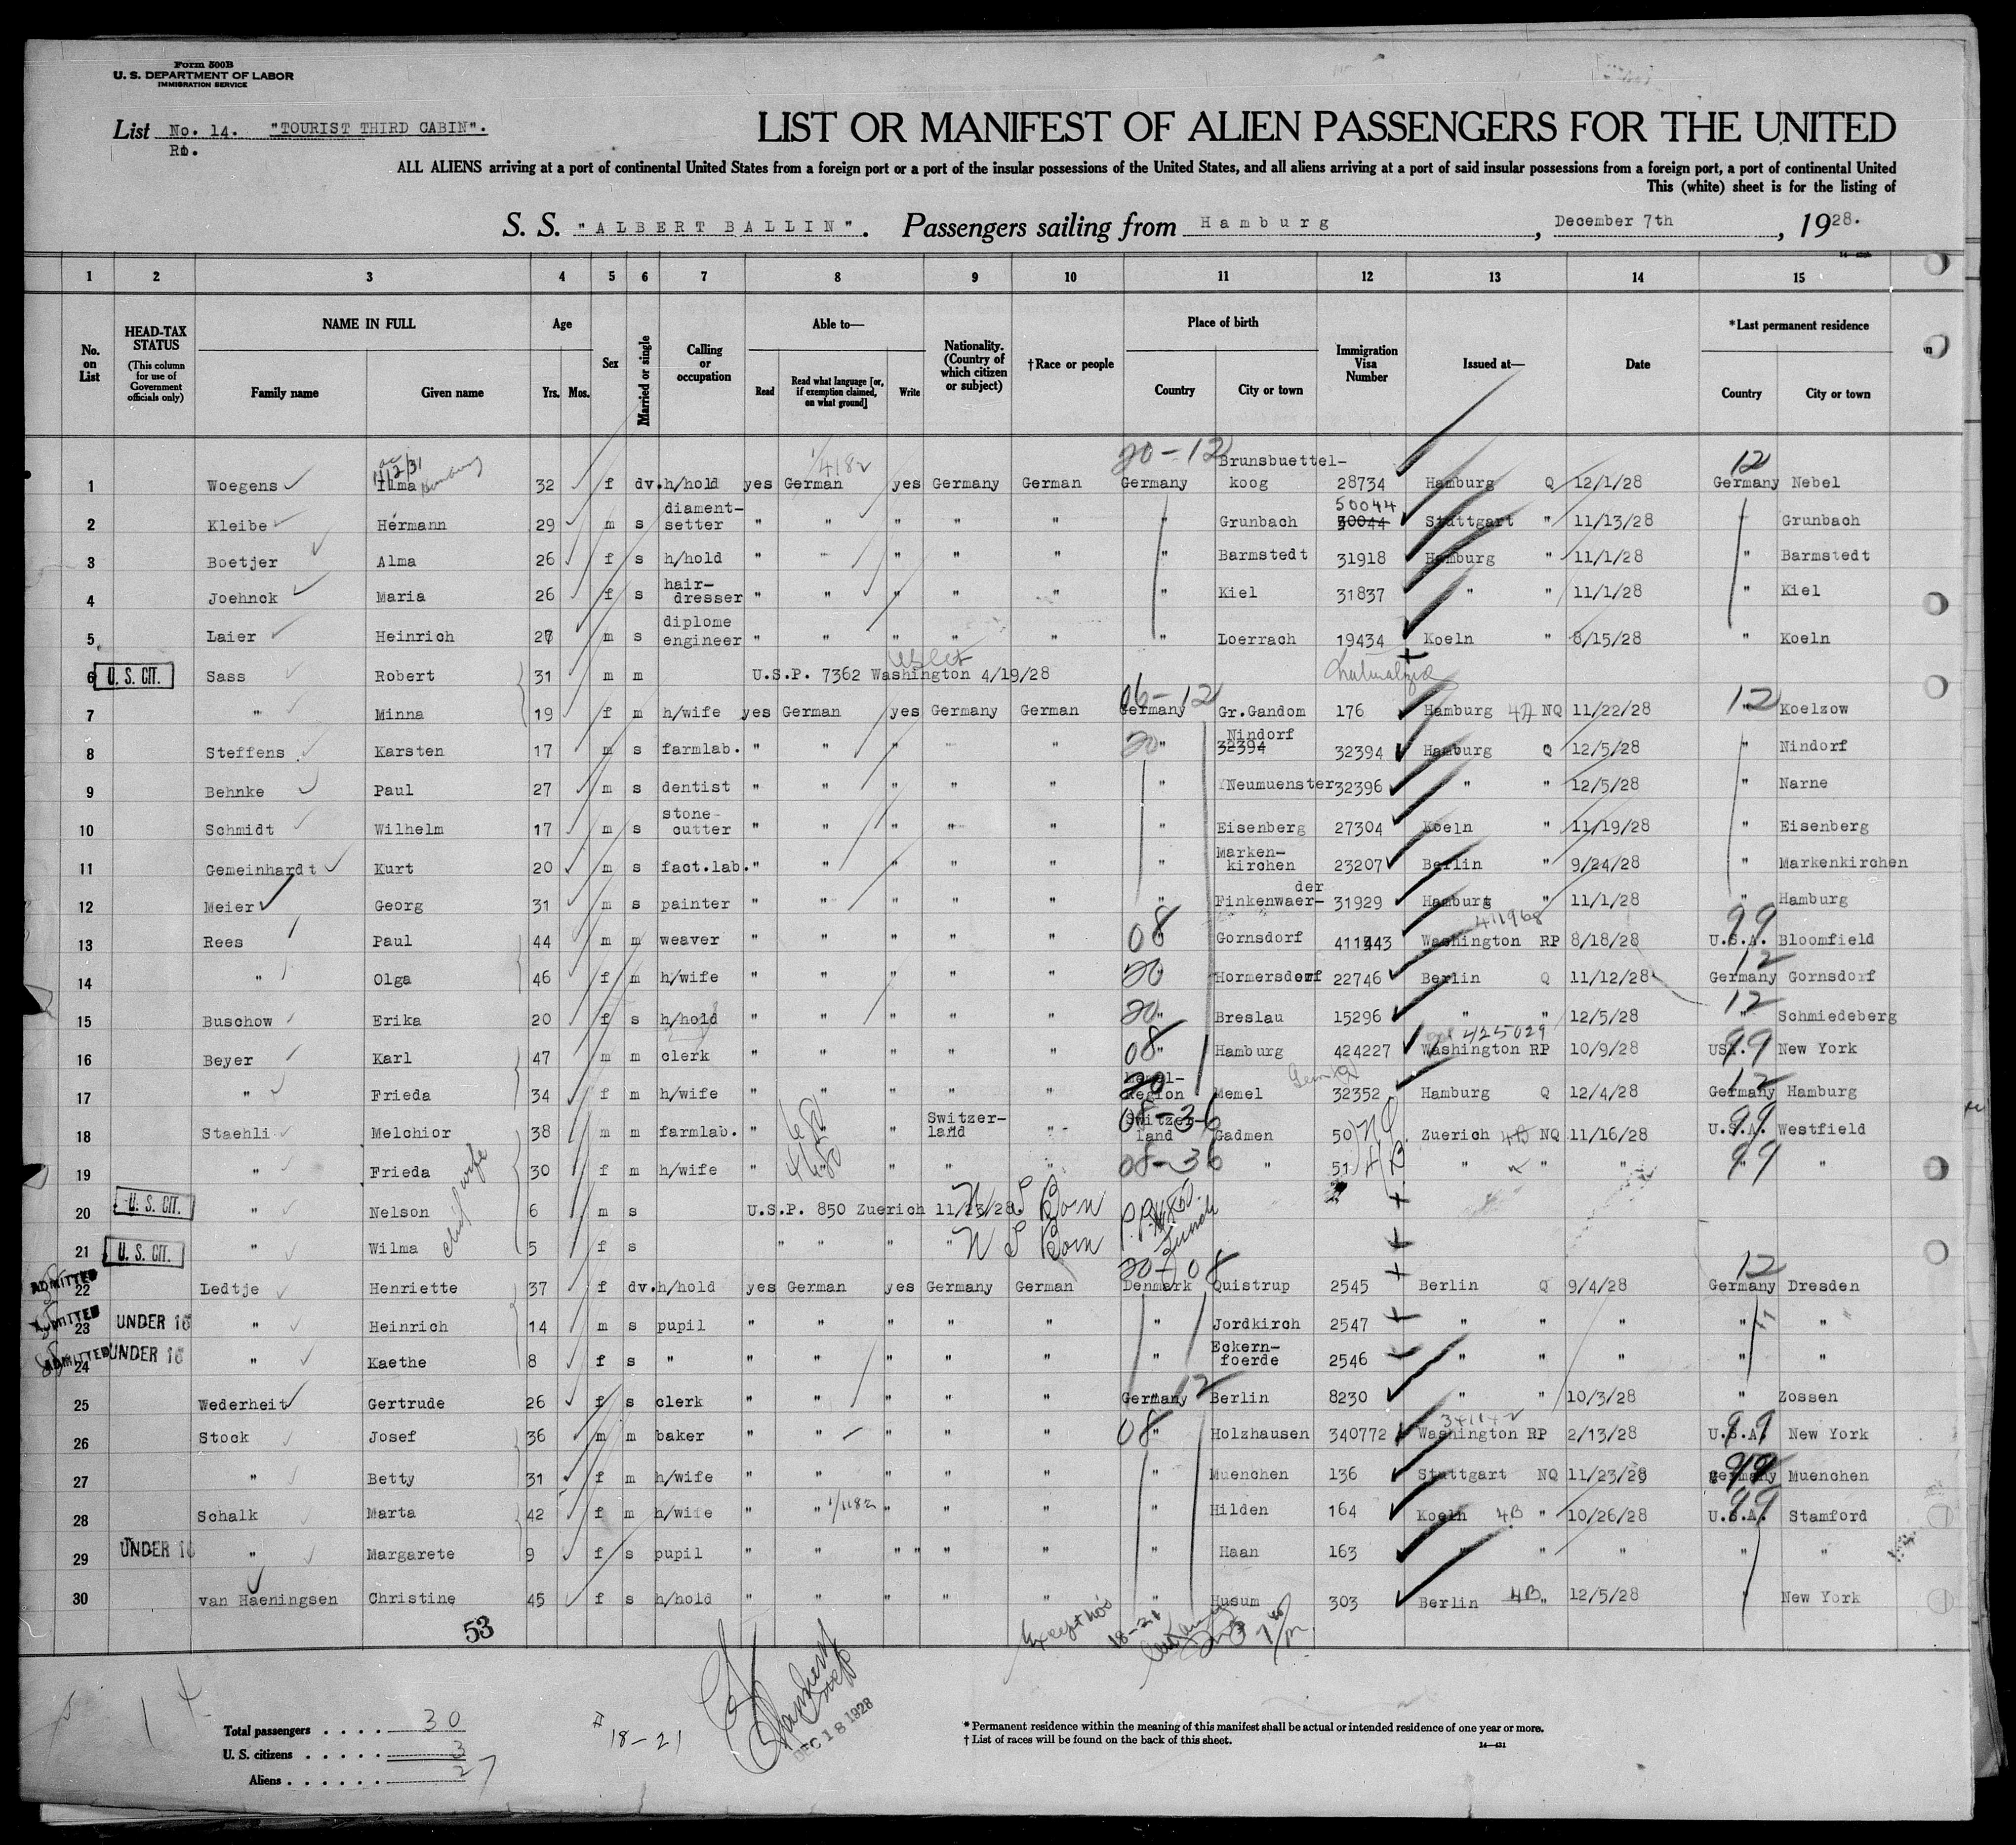 Form 500B
U. S. DEPARTMENT OF LABOR
IMMIGRATION SERVICE
List No. 14. "TOURIST THIRD CABIN".
LIST OR MANIFEST OF ALIEN PASSENGERS FOR THE UNITED
ALL ALIENS arriving at a port of continental United States from a foreign port or a port of the insular possessions of the United States, and all aliens arriving at a port of said insular possessions from a foreign port, a port of continental United
This (white) sheet is for the listing of
S. S. "ALBERT BALLIN". Passengers sailing from Hamburg, December 7th, 1928.
1 2 3 4 5 6 7 8 9 10 11 12 13 14 15
No. on List
HEAD-TAX STATUS (This column for use of Government officials only)
NAME IN FULL Family name Given name
Age Yrs. Mos.
Sex
Married or single
Calling or occupation
Able to— Read Read what language [or, if exemption claimed, on what ground] Write
Nationality. (Country of which citizen or subject)
†Race or people
Place of birth Country City or town
Immigration Visa Number
Issued at—
Date
*Last permanent residence Country City or town
20-12 12
1 Woegens Ilma 32 f dv. h/hold yes German yes Germany German Germany Brunsbuettel-koog 28734 Hamburg Q 12/1/28 Germany Nebel
2 Kleibe Hermann 29 m s diament-setter " " " " " " Grunbach 50044 Stuttgart " 11/13/28 " Grunbach
3 Boetjer Alma 26 f s h/hold " " " " " " Barmstedt 31918 Hamburg " 11/1/28 " Barmstedt
4 Joehnck Maria 26 f s hair-dresser " " " " " " Kiel 31837 " " 11/1/28 " Kiel
5 Laier Heinrich 27 m s diplome engineer " " " " " " Loerrach 19434 Koeln " 8/15/28 " Koeln
6 U. S. CIT. Sass Robert 31 m m U.S.P. 7362 Washington 4/19/28 naturalized
06-12 12
7 " Minna 19 f m h/wife yes German yes Germany German Germany Gr.Gandom 176 Hamburg NQ 11/22/28 " Koelzow
8 Steffens Karsten 17 m s farmlab. " " " " " 20 " Nindorf 32394 32394 Hamburg Q 12/5/28 " Nindorf
9 Behnke Paul 27 m s dentist " " " " " " Neumuenster 32396 " " 12/5/28 " Narne
10 Schmidt Wilhelm 17 m s stone-cutter " " " " " " Eisenberg 27304 Koeln " 11/19/28 " Eisenberg
11 Gemeinhardt Kurt 20 m s fact.lab. " " " " " " Marken-kirchen 23207 Berlin " 9/24/28 " Markenkirchen
12 Meier Georg 31 m s painter " " " " " " Finkenwaer-der 31929 Hamburg " 11/1/28 " Hamburg
411968 99
13 Rees Paul 44 m m weaver " " " " " 08 Gornsdorf 411443 Washington RP 8/18/28 U.S.A. Bloomfield
14 " Olga 46 f m h/wife " " " " " 20 Hormersdorf 22746 Berlin Q 11/12/28 12 Germany Gornsdorf
15 Buschow Erika 20 f s h/hold " " " " " 20 " Breslau 15296 " " 12/5/28 12 " Schmiedeberg
425029
16 Beyer Karl 47 m m clerk " " " " " 08 " Hamburg 424227 Washington RP 10/9/28 USA. 99 New York
17 " Frieda 34 f m h/wife " " " " " Memel-Region 20 Memel 32352 Hamburg Q 12/4/28 12 Germany Hamburg
18 Staehli Melchior 38 m m farmlab. " " " Switzer-land " 08-36 Switzer-land Gadmen 50 NQ Zuerich NQ 11/16/28 99 U.S.A. Westfield
19 " Frieda 30 f m h/wife " " " " " 08-36 " 51 4B " " " 99 " "
20 U. S. CIT. " Nelson 6 m s U.S.P. 850 Zuerich 11/23/28. U S Born
21 U. S. CIT. " Wilma 5 f s " " " " U S Born
20-08 12
22 ADMITTED Ledtje Henriette 37 f dv. h/hold yes German yes Germany German Denmark Quistrup 2545 Berlin Q 9/4/28 Germany Dresden
23 ADMITTED UNDER 16 " Heinrich 14 m s pupil " " " " " " Jordkirch 2547 " " " " "
24 ADMITTED UNDER 16 " Kaethe 8 f s " " " " " " " Eckern-foerde 2546 " " " " "
25 Wederheit Gertrude 26 f s clerk " " " " " Germany 12 Berlin 8230 " " 10/3/28 " Zossen
341142
26 Stock Josef 36 m m baker " " " " " 08 " Holzhausen 340772 Washington RP 2/13/28 99 U.S.A. New York
27 " Betty 31 f m h/wife " " " " " " Muenchen 136 Stuttgart NQ 11/23/28 99 Germany Muenchen
28 Schalk Marta 42 f m h/wife " " " " " " Hilden 164 Koeln 4B " 10/26/28 99 U.S.A. Stamford
29 UNDER 16 " Margarete 9 f s pupil " " " " " " " Haan 163 " " " " "
30 van Haeningsen Christine 45 f s h/hold " " " " " " Husum 303 Berlin 4B " 12/5/28 " New York
53
Except nos 18-21
Total passengers .... 30
U. S. citizens ..... 3
Aliens ...... 27
18-21
DEC 18 1928
* Permanent residence within the meaning of this manifest shall be actual or intended residence of one year or more.
† List of races will be found on the back of this sheet.
14—431